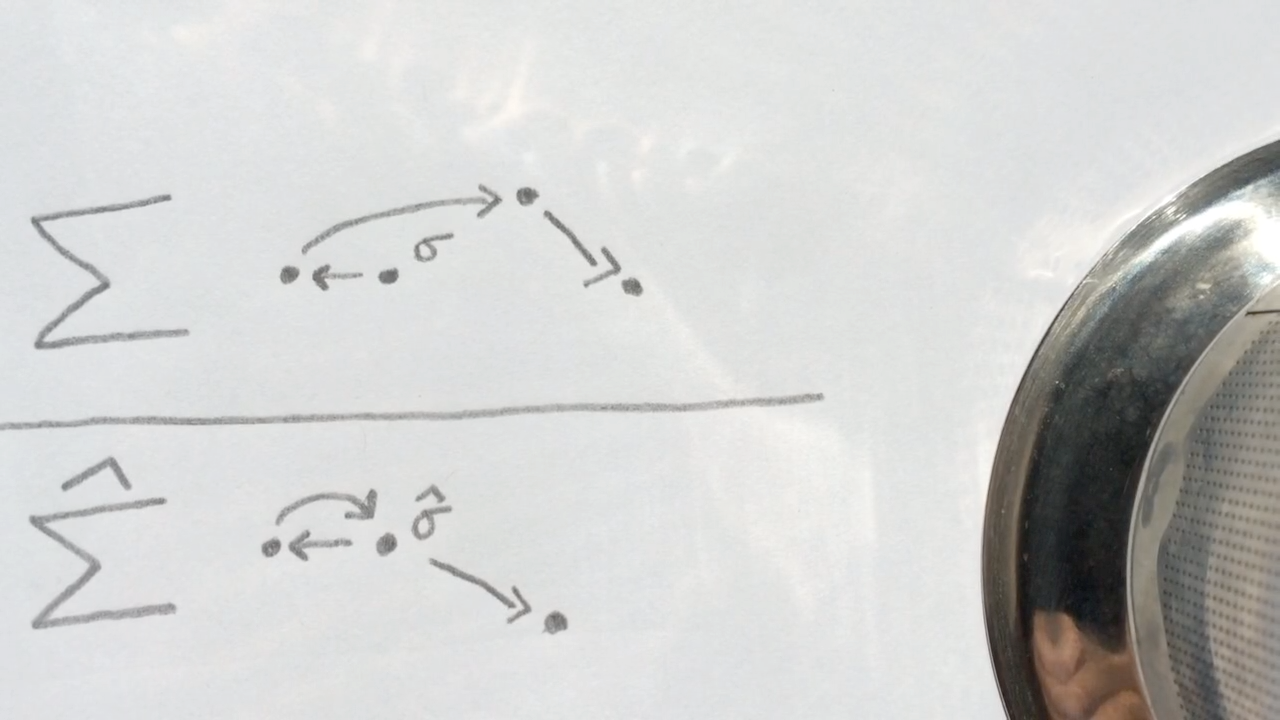 Σ σ
Σ̂ σ̂